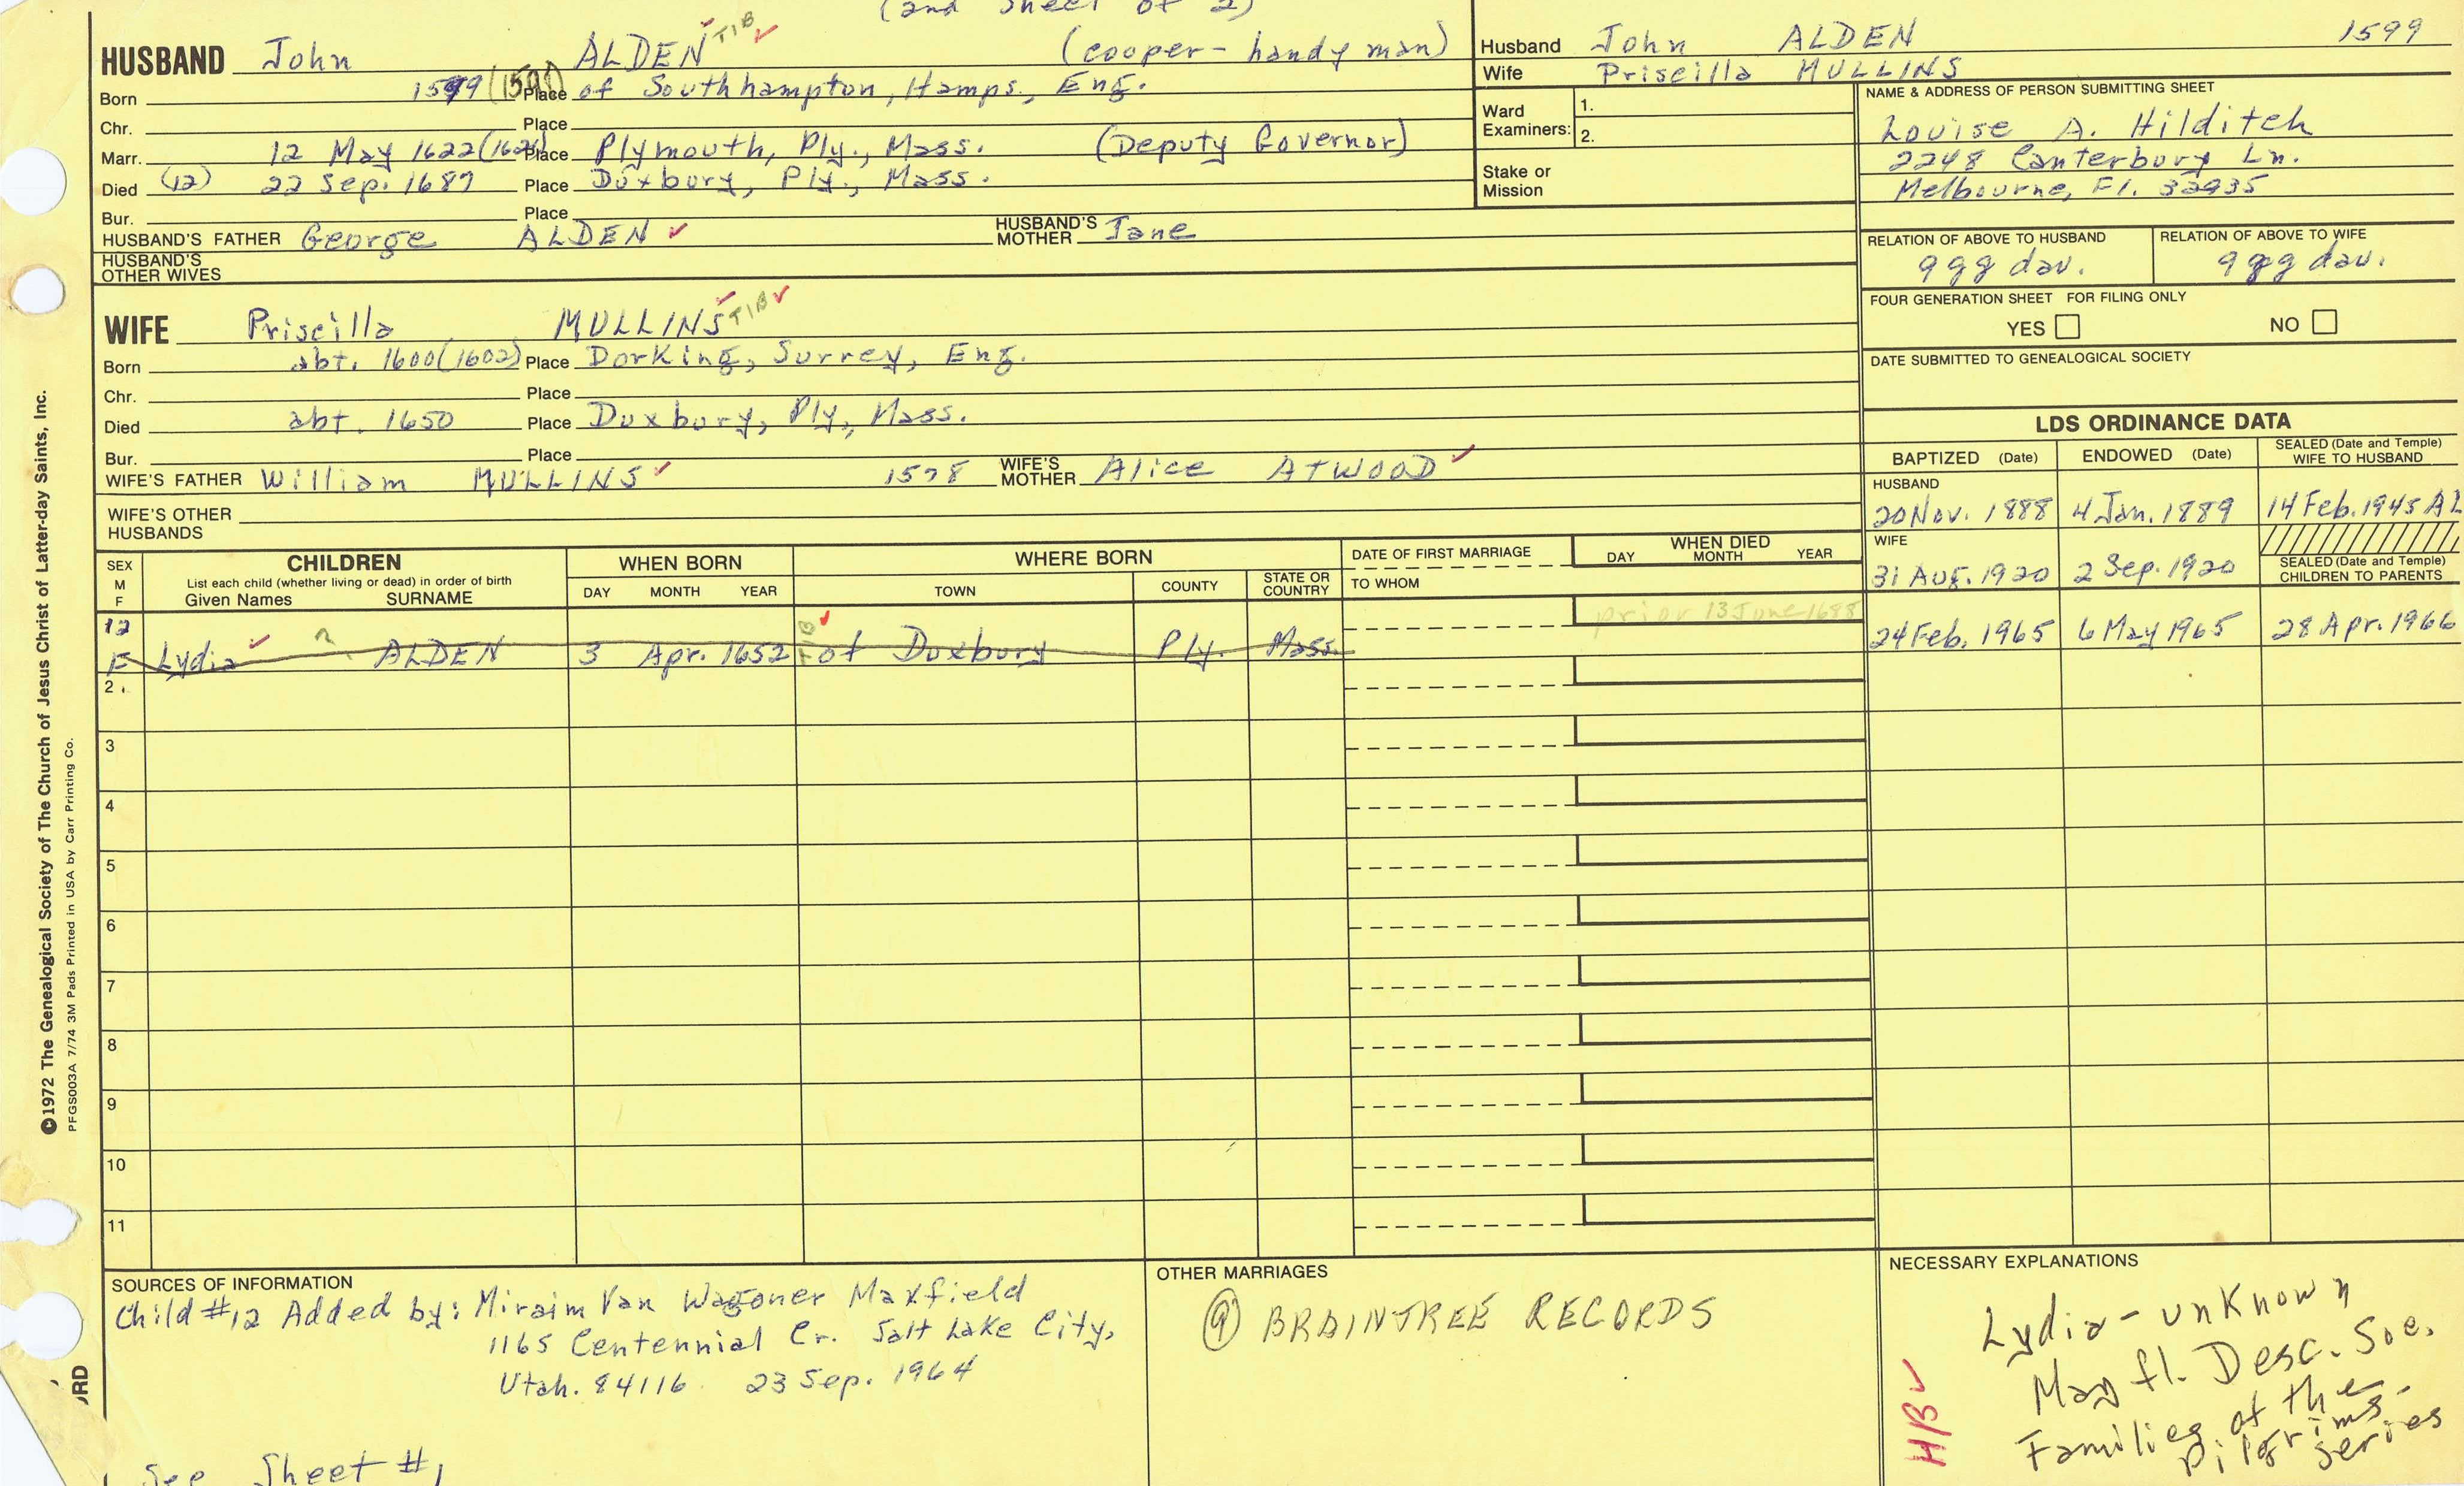 (2nd sheet of 2)
HUSBAND John ALDEN TIB ✓ (cooper-handy man)
Born 1599 (1598) Place of Southhampton, Hamps., Eng.
Chr. Place
Marr. 12 May 1622 (1621) Place Plymouth, Ply., Mass. (Deputy Governor)
Died (12) 22 Sep. 1687 Place Duxbury, Ply., Mass.
Bur. Place
HUSBAND'S FATHER George ALDEN ✓ HUSBAND'S MOTHER Jane
HUSBAND'S OTHER WIVES
WIFE Priscilla MULLINS TIB ✓
Born abt. 1600 (1602) Place Dorking, Surrey, Eng.
Chr. Place
Died abt. 1650 Place Duxbury, Ply., Mass.
Bur. Place
WIFE'S FATHER William MULLINS ✓ 1578 WIFE'S MOTHER Alice ATWOOD ✓
WIFE'S OTHER HUSBANDS
Husband John ALDEN 1599
Wife Priscilla MULLINS
Ward Examiners: 1.
2.
Stake or Mission
NAME & ADDRESS OF PERSON SUBMITTING SHEET
Louise A. Hilditch
2248 Canterbury Ln.
Melbourne, Fl. 32935
RELATION OF ABOVE TO HUSBAND RELATION OF ABOVE TO WIFE
9 gg dau. 9 gg dau.
FOUR GENERATION SHEET FOR FILING ONLY
YES NO
DATE SUBMITTED TO GENEALOGICAL SOCIETY
LDS ORDINANCE DATA
BAPTIZED (Date) ENDOWED (Date) SEALED (Date and Temple) WIFE TO HUSBAND
HUSBAND
20 Nov. 1888 4 Jan. 1889 14 Feb. 1945 AL
WIFE
31 Aug. 1920 2 Sep. 1920 SEALED (Date and Temple) CHILDREN TO PARENTS
SEX M F CHILDREN List each child (whether living or dead) in order of birth Given Names SURNAME
WHEN BORN DAY MONTH YEAR
WHERE BORN TOWN COUNTY STATE OR COUNTRY
DATE OF FIRST MARRIAGE TO WHOM
WHEN DIED DAY MONTH YEAR
12 prior 13 June 1688
F Lydia ✓ ? ALDEN 3 Apr. 1652 TIB ✓ of Duxbury Ply. Mass. 24 Feb. 1965 6 May 1965 28 Apr. 1966
2.
3
4
5
6
7
8
9
10
11
SOURCES OF INFORMATION
Child #12 Added by: Miraim Van Wagoner Maxfield
1165 Centennial Cr. Salt Lake City,
Utah. 84116 23 Sep. 1964
See Sheet #1
OTHER MARRIAGES
(9) BRAINTREE RECORDS
NECESSARY EXPLANATIONS
Lydia - unknown
Mayfl. Desc. Soc.
Families of the
Pilgrims -
series
HB ✓
©1972 The Genealogical Society of The Church of Jesus Christ of Latter-day Saints, Inc.
PFGS003A 7/74 3M Pads Printed in USA by Carr Printing Co.